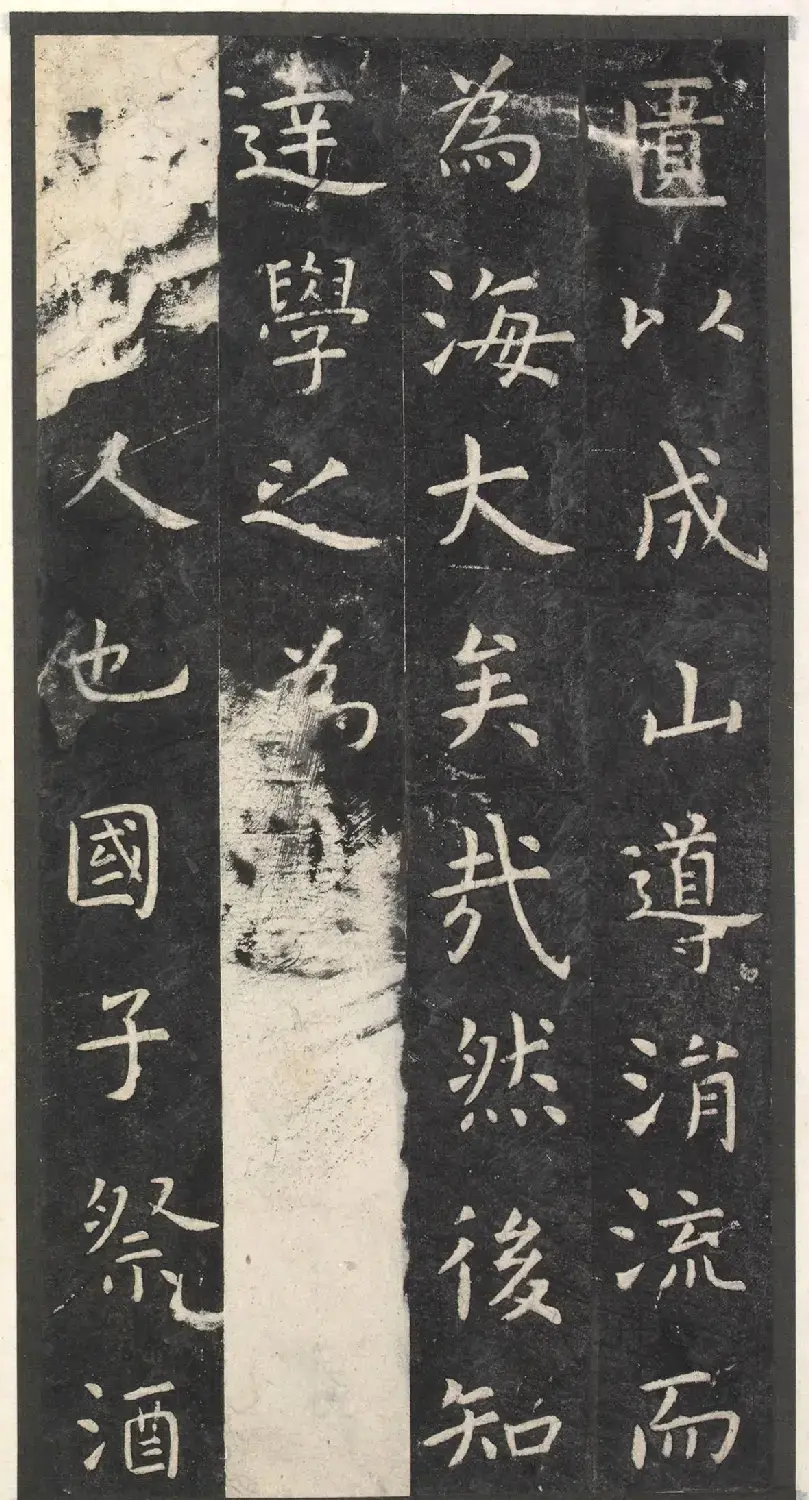 匱以成山導涓流而
為海大矣哉然後知
達學之為
人也國子祭酒